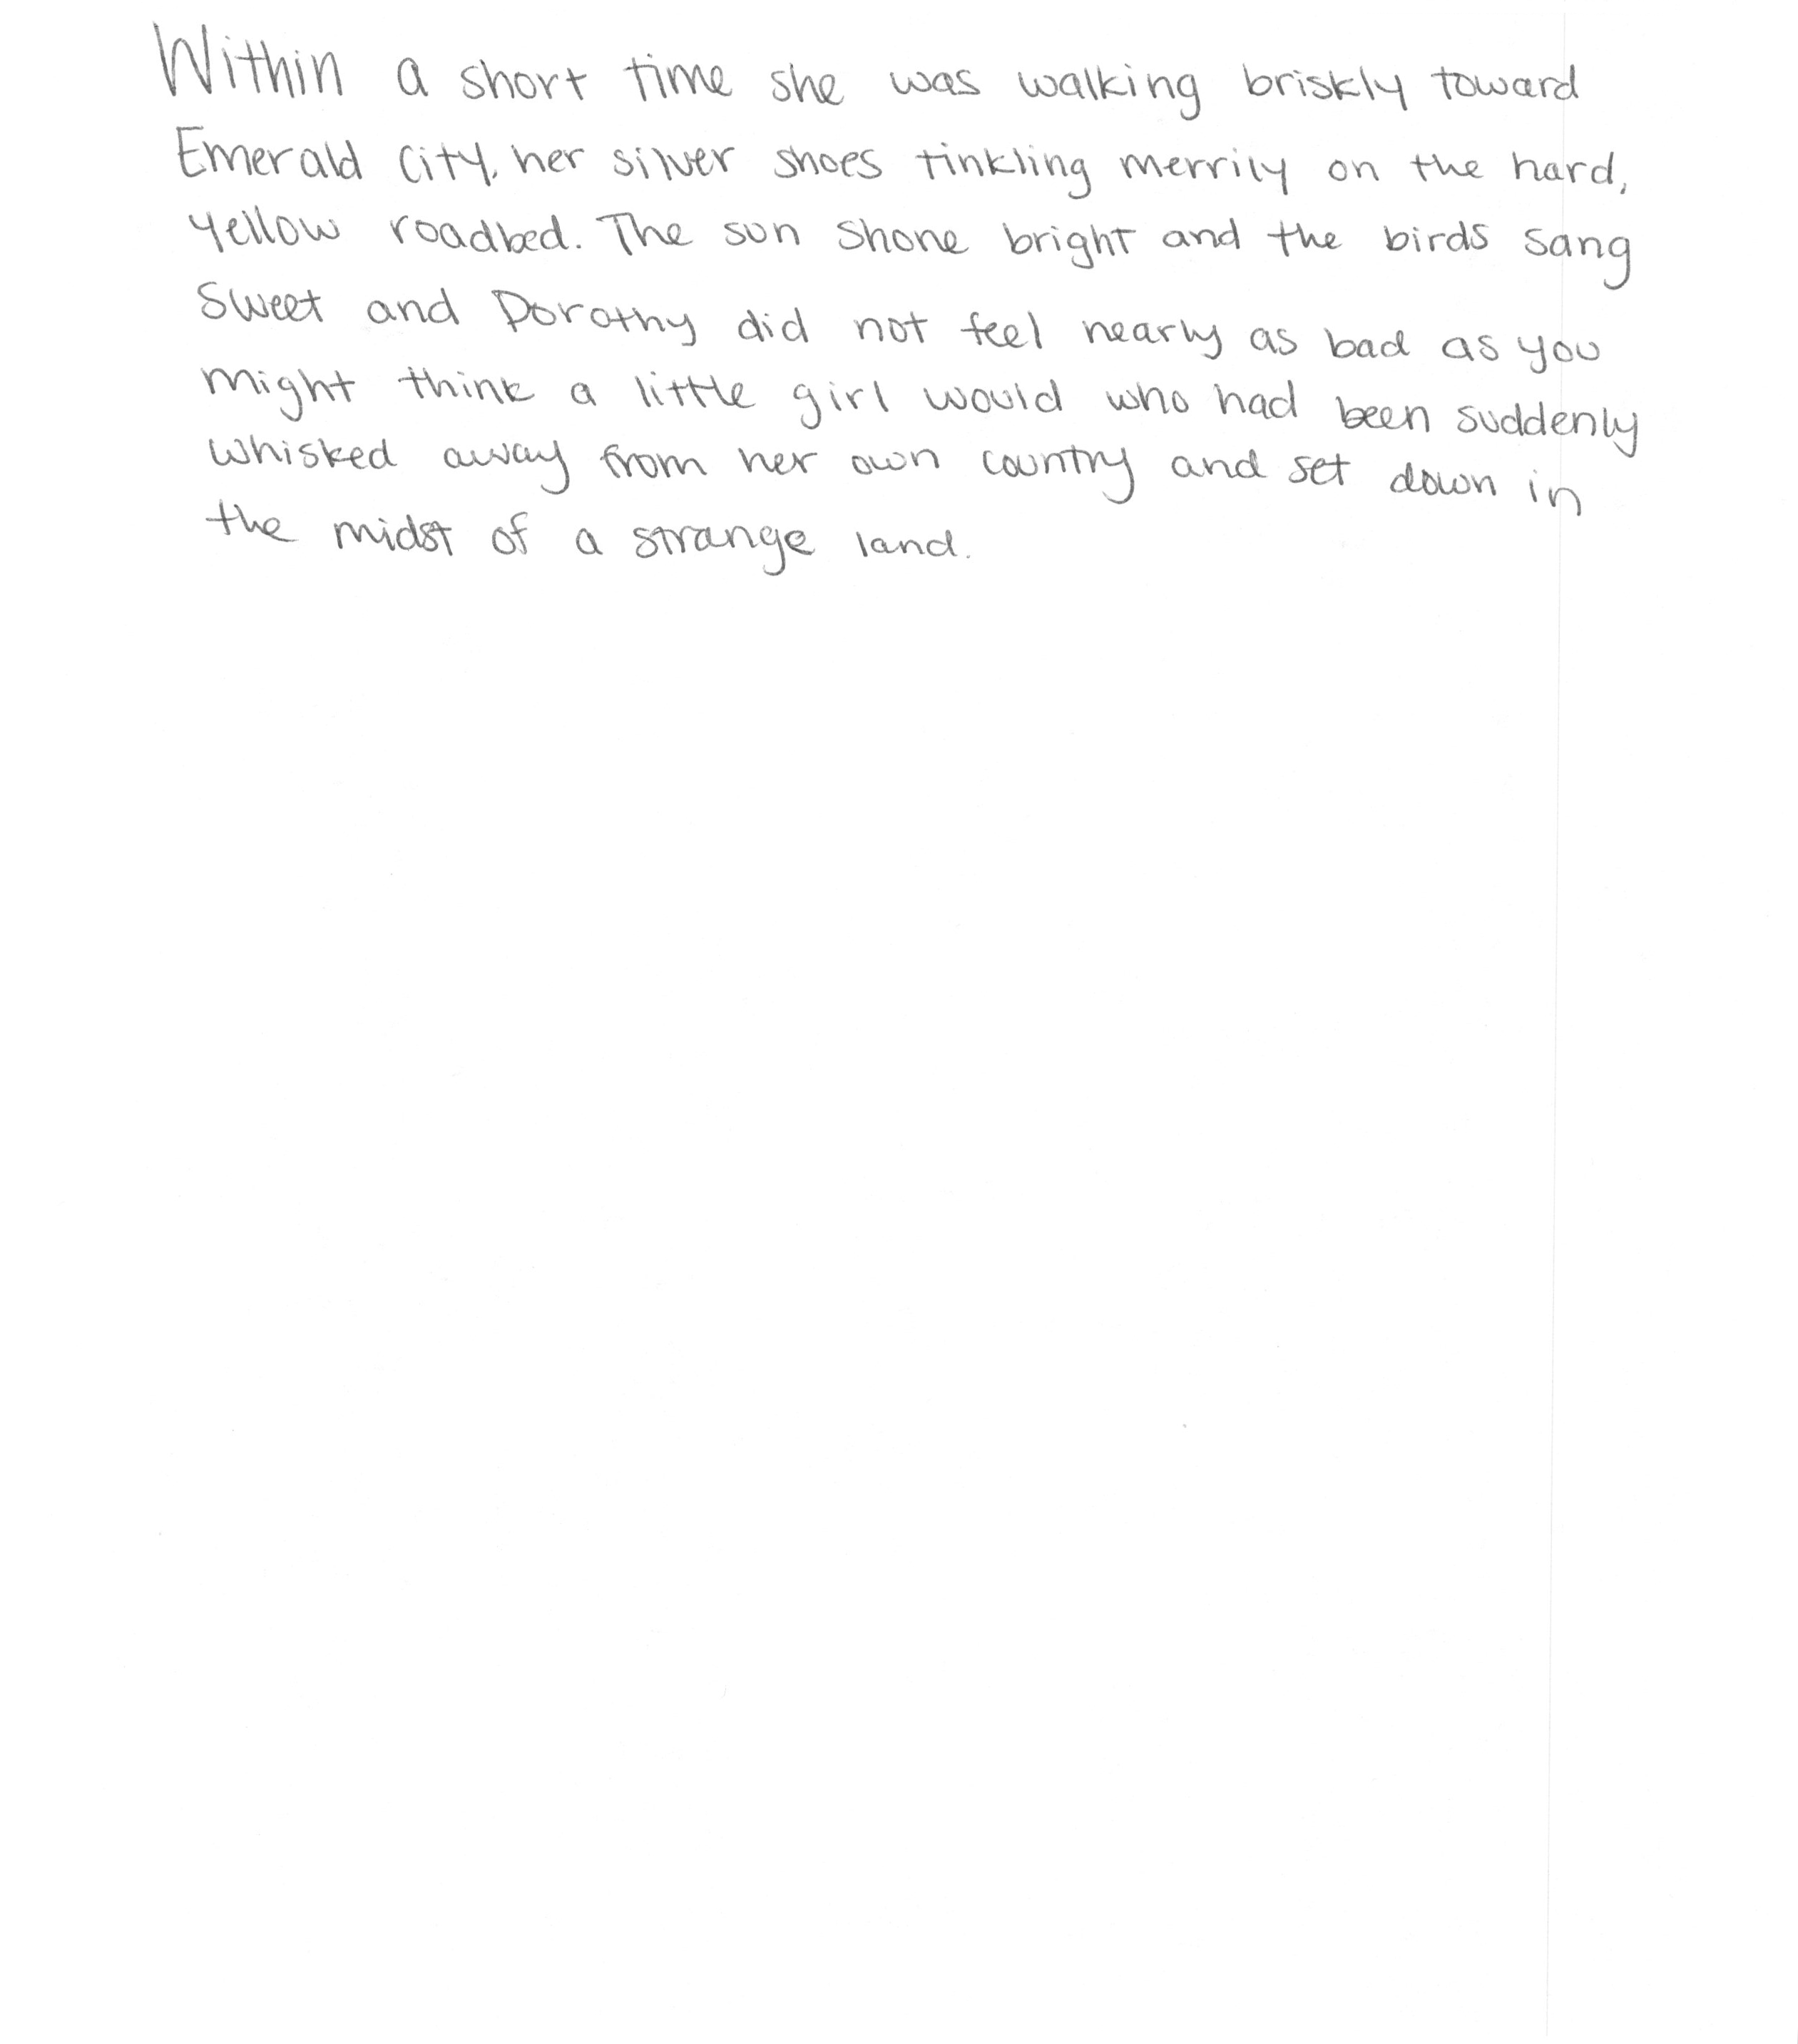 Within a short time she was walking briskly toward
Emerald City, her silver shoes tinkling merrily on the hard,
yellow roadbed. The sun shone bright and the birds sang
sweet and Dorothy did not feel nearly as bad as you
might think a little girl would who had been suddenly
whisked away from her own country and set down in
the midst of a strange land.